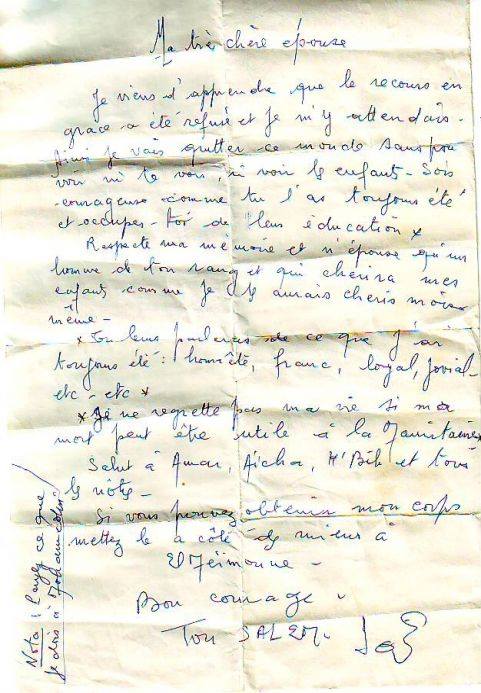 Ma très chère épouse
Je viens d'apprendre que le recours en
grace a été refusé et Je m'y attendais -
Ainsi je vais quitter ce monde sans pou
voir ni te voir, ni voir les enfants - Sois
courageuse comme tu l'as toujours été
et occupes - toi de leurs éducation x
Respecte ma mémoire et n'épouse qu'un
homme de ton rang et qui chérira mes
enfants comme Je les aurais cheris moi
même -
x Tu leurs parleras de ce que J'ai
toujours été : honnête, franc, loyal, jovial -
etc - etc x
x Je ne regrette pas ma vie si ma
mort peut être utile à la Mauritanie x
Salut à Amar, Aïcha, et tous
les nôtres -
Si vous pouvez obtenir mon corps
mettez le à côté des miens à
El Meimoune -
Bon courage .
Ton SALEM.
Nota : Payez ce que
je dois à